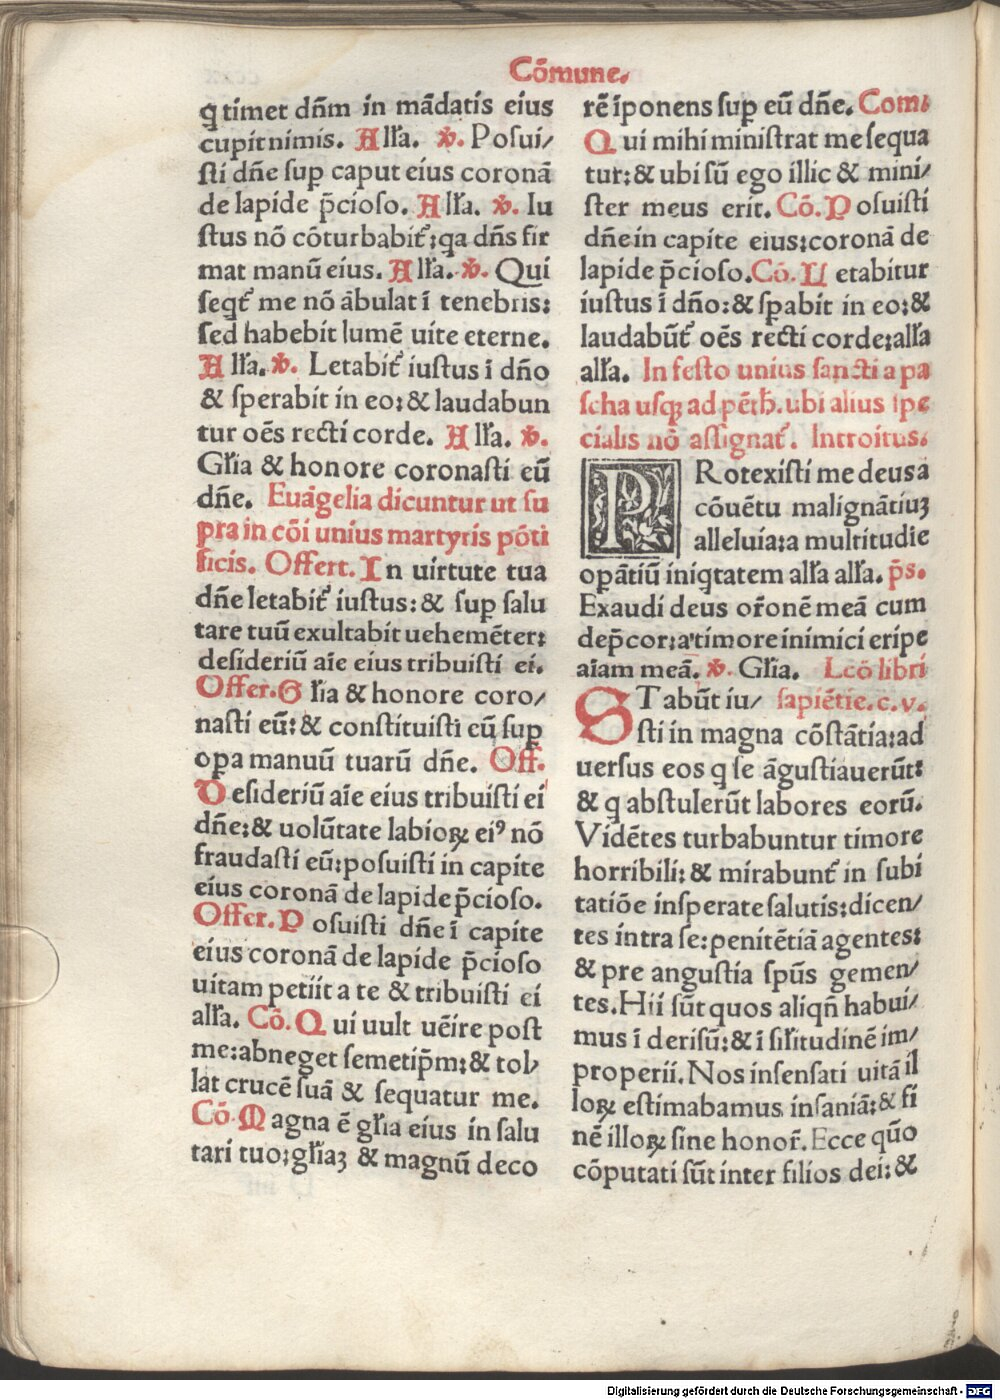 Cōmune.
q̄ timet dn̄m in mādatis eius
cupit nimis. Allʼa. ℣. Posui/
sti dn̄e sup̱ caput eius coronā
de lapide p̄cioso. Allʼa. ℣. Iu
stus nō cōturbabit᷑: qa dn̄s fir
mat manū eius. Allʼa. ℣. Qui
seqt᷑ me nō ābulat ī tenebris:
sed habebit lumē uite eterne.
Allʼa. ℣. Letabit᷑ iustus ī dn̄o
& sperabit in eo: & laudabun
tur oēs recti corde. Allʼa. ℣.
Glʼia & honore coronasti eū
dn̄e. Euāgelia dicuntur ut su
pra in cōi unius martyris pōti
ficis. Offert. In uirtute tua
dn̄e letabit᷑ iustus: & sup̱ salu
tare tuū exultabit uehemēter:
desideriū aīe eius tribuisti ei.
Offer. Glʼia & honore coro/
nasti eū: & constituisti eū sup̱
opa manuū tuarū dn̄e. Off.
Desideriū aīe eius tribuisti ei
dn̄e: & uolūtate labioꝝ eiꝰ nō
fraudasti eū: posuisti in capite
eius coronā de lapide p̄cioso.
Offer. Posuisti dn̄e ī capite
eius coronā de lapide p̄cioso
uitam petiit a te & tribuisti ei
allʼa. Cō. Qui uult uēire post
me: abneget semetip̄m: & tol/
lat crucē suā & sequatur me.
Cō. Magna ē glʼia eius in salu
tari tuo: glʼiaꝫ & magnū deco
rē īponens sup̱ eū dn̄e. Com.
Qui mihi ministrat me sequa
tur: & ubi sū ego illic & mini/
ster meus erit. Cō. Posuisti
dn̄e in capite eius: coronā de
lapide p̄cioso. Cō. Letabitur
iustus ī dn̄o: & sp̱abit in eo: &
laudabūt᷑ oēs recti corde: allʼa
allʼa. In festo unius sancti a pa
scha usqꝫ ad pēth̄. ubi alius spe
cialis nō assignat᷑. Introitus.
PRotexisti me deus a
cōuētu malignātiuꝫ
alleluia: a multitudie
op̱ātiū iniqtatem allʼa allʼa. p̄s.
Exaudi deus or̄onē meā cum
dep̄cor: a timore inimici eripe
aīam meā. ℣. Glʼia. Lcō libri
STabūt iu/ sapiētie. c. v.
sti in magna cōstātia: ad
uersus eos q se āgustiauerūt:
& q abstulerūt labores eorū.
Vidētes turbabuntur timore
horribili: & mirabunt᷑ in subi
tatiōe insperate salutis: dicen/
tes intra se: penitētiā agentes:
& pre angustia sp̄us gemen/
tes. Hii sūt quos aliqn̄ habui/
mus ī derisū: & ī silʼitudinē im/
properii. Nos insensati uitā il
loꝝ estimabamus insaniā: & fi
nē illoꝝ sine honor̄. Ecce quō
cōputati sūt inter filios dei: &
Digitalisierung gefördert durch die Deutsche Forschungsgemeinschaft - DFG